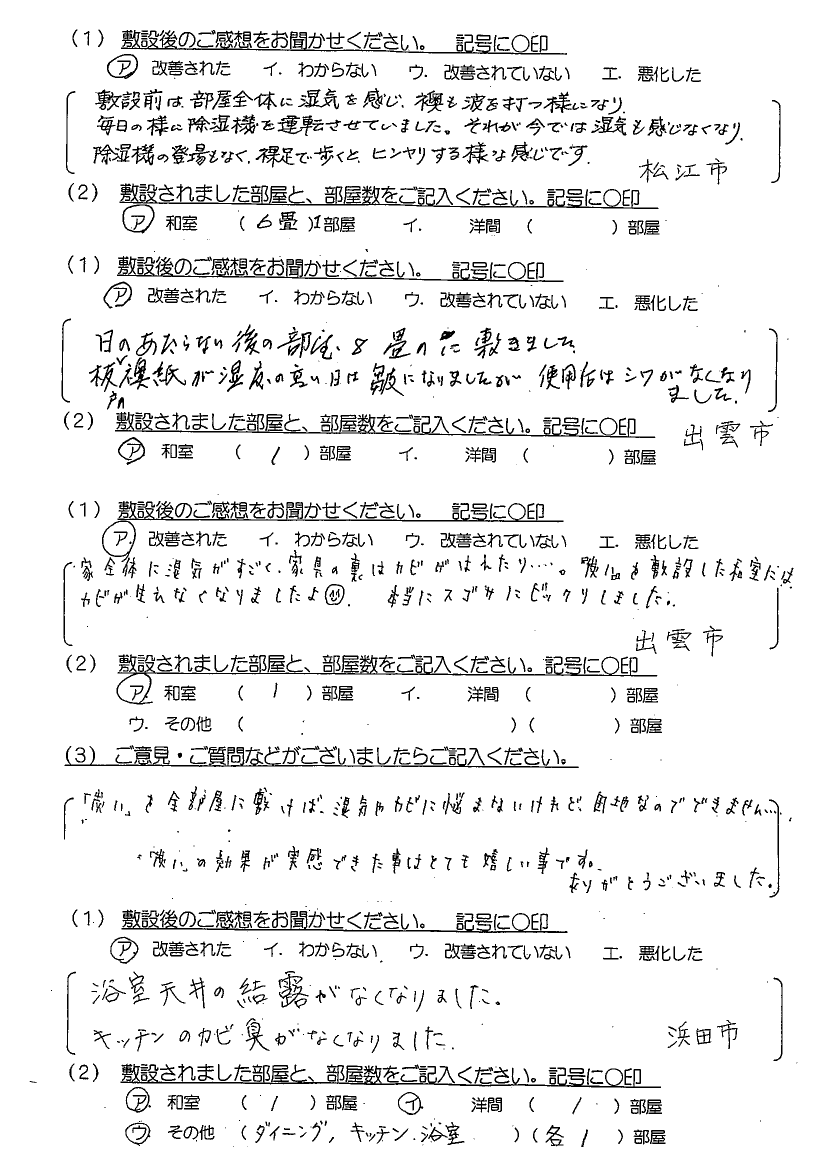 (1) 敷設後のご感想をお聞かせください。 記号に○印
ア. 改善された イ. わからない ウ. 改善されていない エ. 悪化した
敷設前は部屋全体に湿気を感じ、襖も波を打つ様になり、
毎日の様に除湿機を運転させていました。それが今では湿気も感じなくなり、
除湿機の登場もなく、裸足で歩くと、ヒンヤリする様な感じです。
松江市
(2) 敷設されました部屋と、部屋数をご記入ください。記号に○印
ア. 和室 ( 6畳 )1部屋 イ. 洋間 ( ) 部屋
(1) 敷設後のご感想をお聞かせください。 記号に○印
ア. 改善された イ. わからない ウ. 改善されていない エ. 悪化した
日のあたらない後の部屋、8畳の に敷きました
板戸の襖紙が湿度の高い日は皺になりましたが 使用后はシワがなくなり
ました.
(2) 敷設されました部屋と、部屋数をご記入ください。記号に○印
出雲市
ア. 和室 ( 1 ) 部屋 イ. 洋間 ( ) 部屋
(1) 敷設後のご感想をお聞かせください。 記号に○印
ア. 改善された イ. わからない ウ. 改善されていない エ. 悪化した
家全体に湿気がすごく、家具の裏はカビがはえたり…。 を敷設した和室だけは、
カビが生えなくなりましたよ 本当にスゴサにビックリしました。
出雲市
(2) 敷設されました部屋と、部屋数をご記入ください。記号に○印
ア. 和室 ( 1 ) 部屋 イ. 洋間 ( ) 部屋
ウ. その他 ( ) ( ) 部屋
(3) ご意見・ご質問などがございましたらご記入ください。
「炭い」を全部屋に敷けば、湿気やカビに悩まないけれど、団地なのでできません…
「炭い」の効果が実感できた事はとても嬉しい事です。
ありがとうございました。
(1) 敷設後のご感想をお聞かせください。 記号に○印
ア. 改善された イ. わからない ウ. 改善されていない エ. 悪化した
浴室天井の結露がなくなりました。
キッチンのカビ臭がなくなりました.
浜田市
(2) 敷設されました部屋と、部屋数をご記入ください。記号に○印
ア. 和室 ( 1 ) 部屋 イ. 洋間 ( 1 ) 部屋
ウ. その他 (ダイニング, キッチン.浴室 ) (各1 ) 部屋